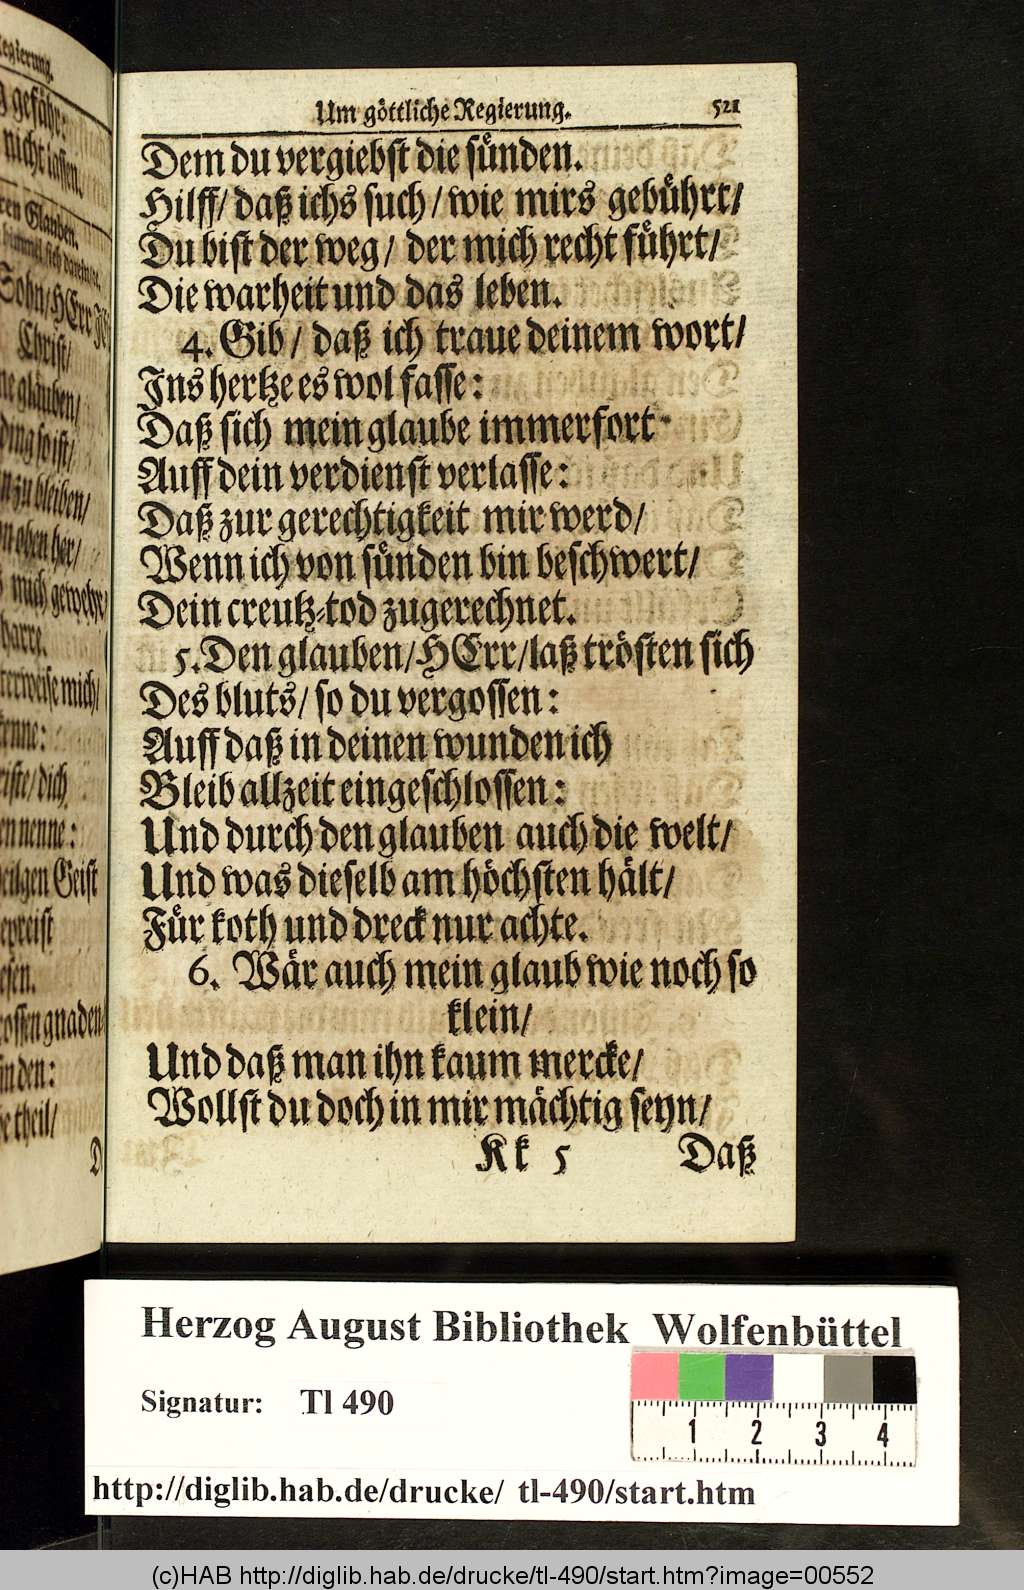 Regierung.
g gefähr:
nicht lassen.
ren Glauben.
Sohn/ HErr
Christ/
gläuben/
ding so ist/
zu bleiben/
oben her/
mich gewehr/
barre.
mich/
kenne:
dich
nenne:
Geist
gepreist
gnaden
finden:
theil/
D
Um göttliche Regierung. 521
Dem du vergiebst die sünden.
Hilff/ daß ichs such/ wie mirs gebührt/
Du bist der weg/ der mich recht führt/
Die warheit und das leben.
4. Gib/ daß ich traue deinem wort/
Ins hertze es wol fasse:
Daß sich mein glaube immerfort
Auff dein verdienst verlasse:
Daß zur gerechtigkeit mir werd/
Wenn ich von sünden bin beschwert/
Dein creutz-tod zugerechnet.
5. Den glauben/ HErr/ laß trösten sich
Des bluts/ so du vergossen:
Auff daß in deinen wunden ich
Bleib allzeit eingeschlossen:
Und durch den glauben auch die welt/
Und was dieselb am höchsten hält/
Für koth und dreck nur achte.
6. Wär auch mein glaub wie noch so
klein/
Und daß man ihn kaum mercke/
Wollst du doch in mir mächtig seyn/
Kk 5 Daß
Herzog August Bibliothek Wolfenbüttel
Signatur: Tl 490
1 2 3 4
http://diglib.hab.de/drucke/ tl-490/start.htm
(c)HAB http://diglib.hab.de/drucke/tl-490/start.htm?image=00552